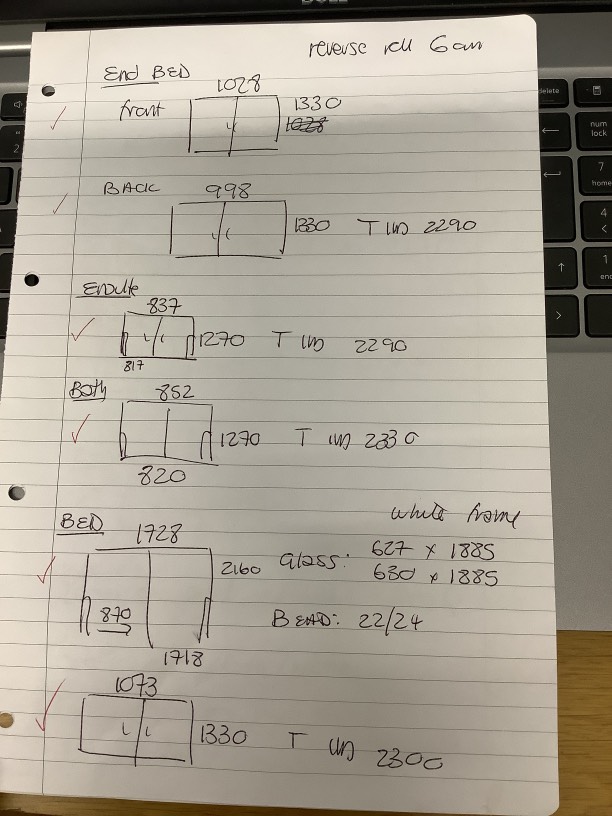 DELL
reverse roll 6cm
End BED
1028
front
1330
1028
BACK
998
1330 T 2290
Ensuite
837
1270 T 2290
817
Both
852
1270 T 2330
820
white frame
BED
1728
2160 Glass: 627 x 1885
630 x 1885
870
BEAD: 22/24
1718
1073
1330 T 2300
delete
num
lock
7
home
4
1
end
2